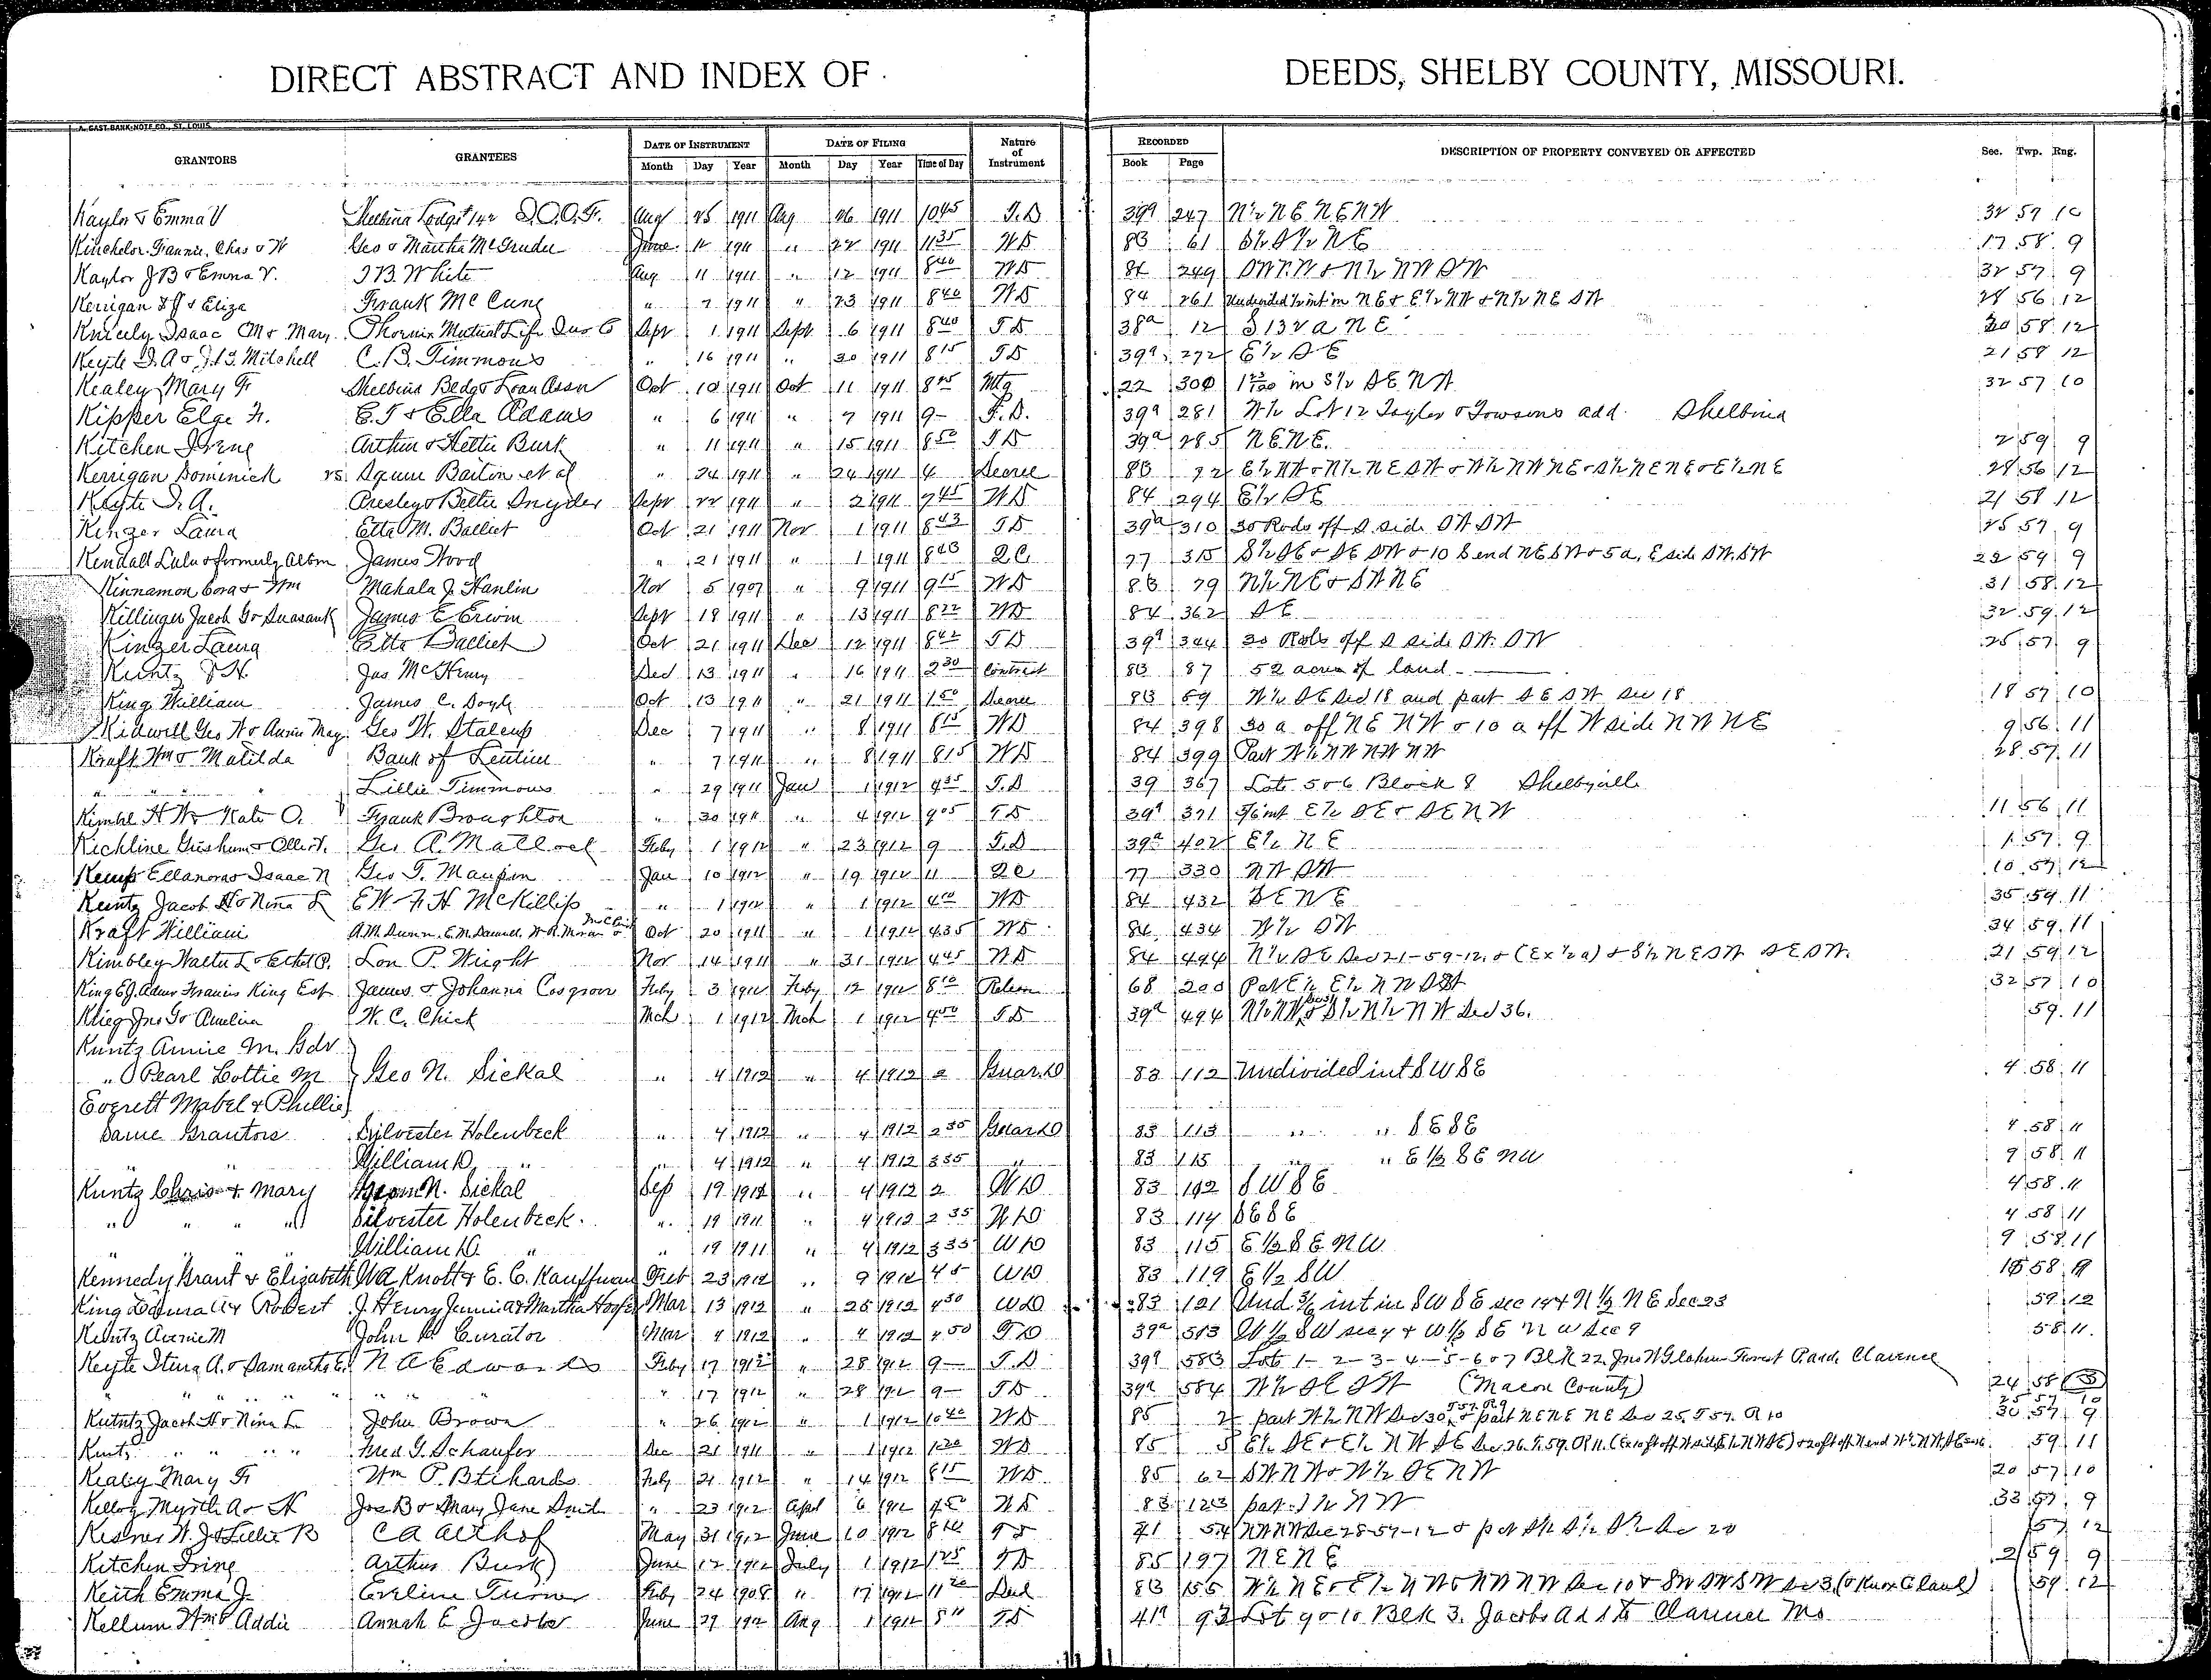 DIRECT ABSTRACT AND INDEX OF DEEDS, SHELBY COUNTY, MISSOURI.
A. GAST BANK NOTE CO., ST. LOUIS
GRANTORS GRANTEES DATE OF INSTRUMENT DATE OF FILING Nature of Instrument RECORDED DESCRIPTION OF PROPERTY CONVEYED OR AFFECTED Sec. Twp. Rng.
Month Day Year Month Day Year Time of Day Book Page
Kaylor & Emma V Shelbina Lodge 142 I.O.O.F. Aug 25 1911 Aug 26 1911 1045 T.D 39a 247 N½ NE NENW 32 57 10
Kinchelor Fannie, Chas & W Geo & Martha McGruder June 12 1911 " 22 1911 1135 WD 83 61 S½ S½ NE 17 58 9
Kaylor J B & Emma V. J B. White Aug 11 1911 " 12 1911 840 WD 84 249 32 57 9
Kerrigan & Eliza Frank McCune " 7 1911 " 23 1911 840 WD 84 261 Undivided ½ int in NE & E½ NW & N½ NE SW 28 56 12
Knicely Isaac M & Mary Phoenix Mutual Life Ins Co Sept 1 1911 Sept 6 1911 840 TD 38a 12 S 132 a NE 20 58 12
Keyte I. A & Mitchell C. B. Timmons " 16 1911 " 30 1911 815 TD 39a 272 E½ SE 21 58 12
Kealey Mary F Shelbina Bldg & Loan Assn Oct 10 1911 Oct 11 1911 Mtg 22 300 in S½ SE NW 32 57 10
Kipper Elge F. E. T & Ella Adams " 6 1911 " 7 1911 9- T.D. 39a 281 W½ Lot 12 Taylor & Towsons add. Shelbina
Kitchen Irene Arthur & Hettie Burk " 11 1911 " 15 1911 850 TD 39a 285 NENE. 2 59 9
Kerrigan Dominick vs. Baiton et al " 24 1911 " 24 1911 4 Decree 83 72 E½ NW & N½ NE SW & W½ NW NE & S½ NE NE & E½ NE 28 56 12
Keyte I. A. Presley & Bettie Snyder Sept 22 1911 " 2 1911 745 WD 84 294 E½ SE 21 58 12
Kinzer Laura Etta M. Balliet Oct 21 1911 Nov 1 1911 843 TD 39a 310 30 Rods off S side SW SW 25 57 9
Kendall Lulu & formerly James Wood " 21 1911 " 1 1911 843 QC 77 315 S½ SE & SE SW & 10 S end NE SW & 5 a, E side SW. SW 22 59 9
Kinnamon Cora & Wm Mahala J. Hanlin Nov 5 1907 " 9 1911 915 WD 83 79 N½ NE & SW NE 31 58 12
Killinger Jacob G & Susannah James E Erwin Sept 18 1911 " 13 1911 822 WD 84 362 SE 32 59 12
Kinzer Laura Etta Balliet Oct 21 1911 Dec 12 1911 842 TD 39a 344 30 Rods off S side SW. SW 25 57 9
Kuntz J H. Jas McHenry Dec 13 1911 " 16 1911 230 Contract 83 87 52 acres of land
King William James C. Doyle Oct 13 1911 " 21 1911 150 Decree 83 59 W½ SE Sec 18 and part SE SW Sec 18 18 57 10
Kidwell Geo W & Annie May Geo W. Stalcup Dec 7 1911 " 8 1911 815 WD 84 398 30 a off NE NW & 10 a off W side NW NE 9 56 11
Kraft Wm & Matilda Bank of Lentner " 7 1911 " 8 1911 815 WD 84 399 Part W½ NW NW NW 28 57 11
" " " Lillie Timmons " 29 1911 Jan 1 1912 T.D 39 367 Lots 5 & 6 Block 8 Shelbyville
Kimbl H W & Kate O. Frank Broughton " 30 1911 " 4 1912 905 TD 39a 371 int E½ SE & SE NW 11 56 11
Kichline Gresham & Ollie Geo A. Matlock Feby 1 1912 " 23 1912 9 T.D 39a 402 E½ NE 1 57 9
Kemp Ellanora & Isaac N Geo T. Maupin Jan 10 1912 " 19 1912 11 QC 77 330 NW SW 10 57 12
Kuntz Jacob H & Nina L E W & F. H McKillip " 1 1912 " 1 1912 WD 84 432 SE NE 35 59 11
Kraft William A. M. Dunn, E. M. Daniell, W. R. Moran & Oct 20 1911 " 1 1912 435 WD 84 434 W½ SW 34 59 11
Kimbley Walter L & Ethel P. Lon P. Wright Nov 14 1911 " 31 1912 445 WD 84 494 N½ SE Sec 21-59-12, & (Ex ½ a) & S½ NE SW SE SW. 21 59 12
King E J. Admr Francis King Est James & Johanna Cosgrove Feby 3 1912 Feby 12 1912 810 Release 68 200 E½ NW 32 57 10
Klieg Jno G & Amelia W. C. Chick Mch 1 1912 Mch 1 1912 TD 39a 494 N½ NW & S½ N½ NW Sec 36. 59 11
Kuntz Annie M. Gdr
" Pearl Lottie M Geo N. Sickal " 4 1912 " 4 1912 2 Guar. D 83 112 Undivided int SW SE 4 58 11
Everett Mabel & Phillie
Same Grantors Silvester Holenbeck " 4 1912 " 4 1912 235 Guar D 83 113 " " SE SE 4 58 11
" " William D. " " 4 1912 " 4 1912 335 " 83 115 " " E ½ SE NW 9 58 11
Kuntz Chris & Mary Geo N. Sickal Sep 19 1912 " 4 1912 2 WD 83 142 SW SE 4 58 11
" " " " Silvester Holenbeck. " 19 1911 " 4 1912 2 35 WD 83 114 SE SE 4 58 11
" William D. " " 19 1911 " 4 1912 335 WD 83 115 E ½ SE NW. 9 58 11
Kennedy Grant & Elizabeth W A Knott & E. C. Kauffman Feb 23 1912 " 9 1912 WD 83 119 E ½ SW 58
King & Robert J. Henry Jennie & Martha Mar 13 1912 " 25 1912 430 WD 83 121 Und 3/6 int in SW SE sec 14 & N ½ NE Sec 23 59 12
Kuntz Annie M John Curator Mar 4 1912 " 4 1912 450 TD 39a 513 W ½ SW sec 4 & W ½ SE NW Sec 9 58 11.
Keyte Iting A. & Samantha E. N A Edwards Feby 17 1912 " 28 1912 9- T.D 39a 583 Lots 1-2-3-4-5-6 & 7 Blk 22. Forest P. add. Clarence
" " " " " 17 1912 " 28 1912 9- TD 39a 584 W½ SE SW (Macon County) 24 58
Kuntz Jacob H & Nina L John Brown " 26 1912 " 1 1912 1040 WD 85 2 part W½ NW Sec 30, & part NE NE NE Sec 25, T 57. R 10 30 57 9
Kuntz " " " " Fred G. Schaufer Dec 21 1911 " 1 1912 120 WD 85 5 E½ SE & E½ NW SE Sec 26 T. 59. R 11. 59 11
Kealey Mary F Wm P. Feby 21 1912 " 14 1912 815 WD 85 62 SW NW & W½ SE NW 20 57 10
Kellog Myrtle A & H Jos B & Mary Jane Smith " 23 1912 Apl 6 1912 WD 83 123 part NW 33 57 9
Kesner W. J & Lillie B C A Althof May 31 1912 June 10 1912 TD 41 54 NW NW Sec 28-57-12 & pt S½ S½ S½ Sec 20 57 12
Kitchen Irine Arthur Burk June 12 1912 July 1 1912 125 TD 85 197 NENE 2 59 9
Keith Emma J. Eveline Turner Feby 24 1908 " 17 1912 1120 Deed 83 155 59 12
Kellum Wm & Addie Annah E Jacobs June 29 1912 Aug 1 1912 TD 41a 93 Lot 9 & 10 Blk 3. Jacobs Add to Clarence Mo